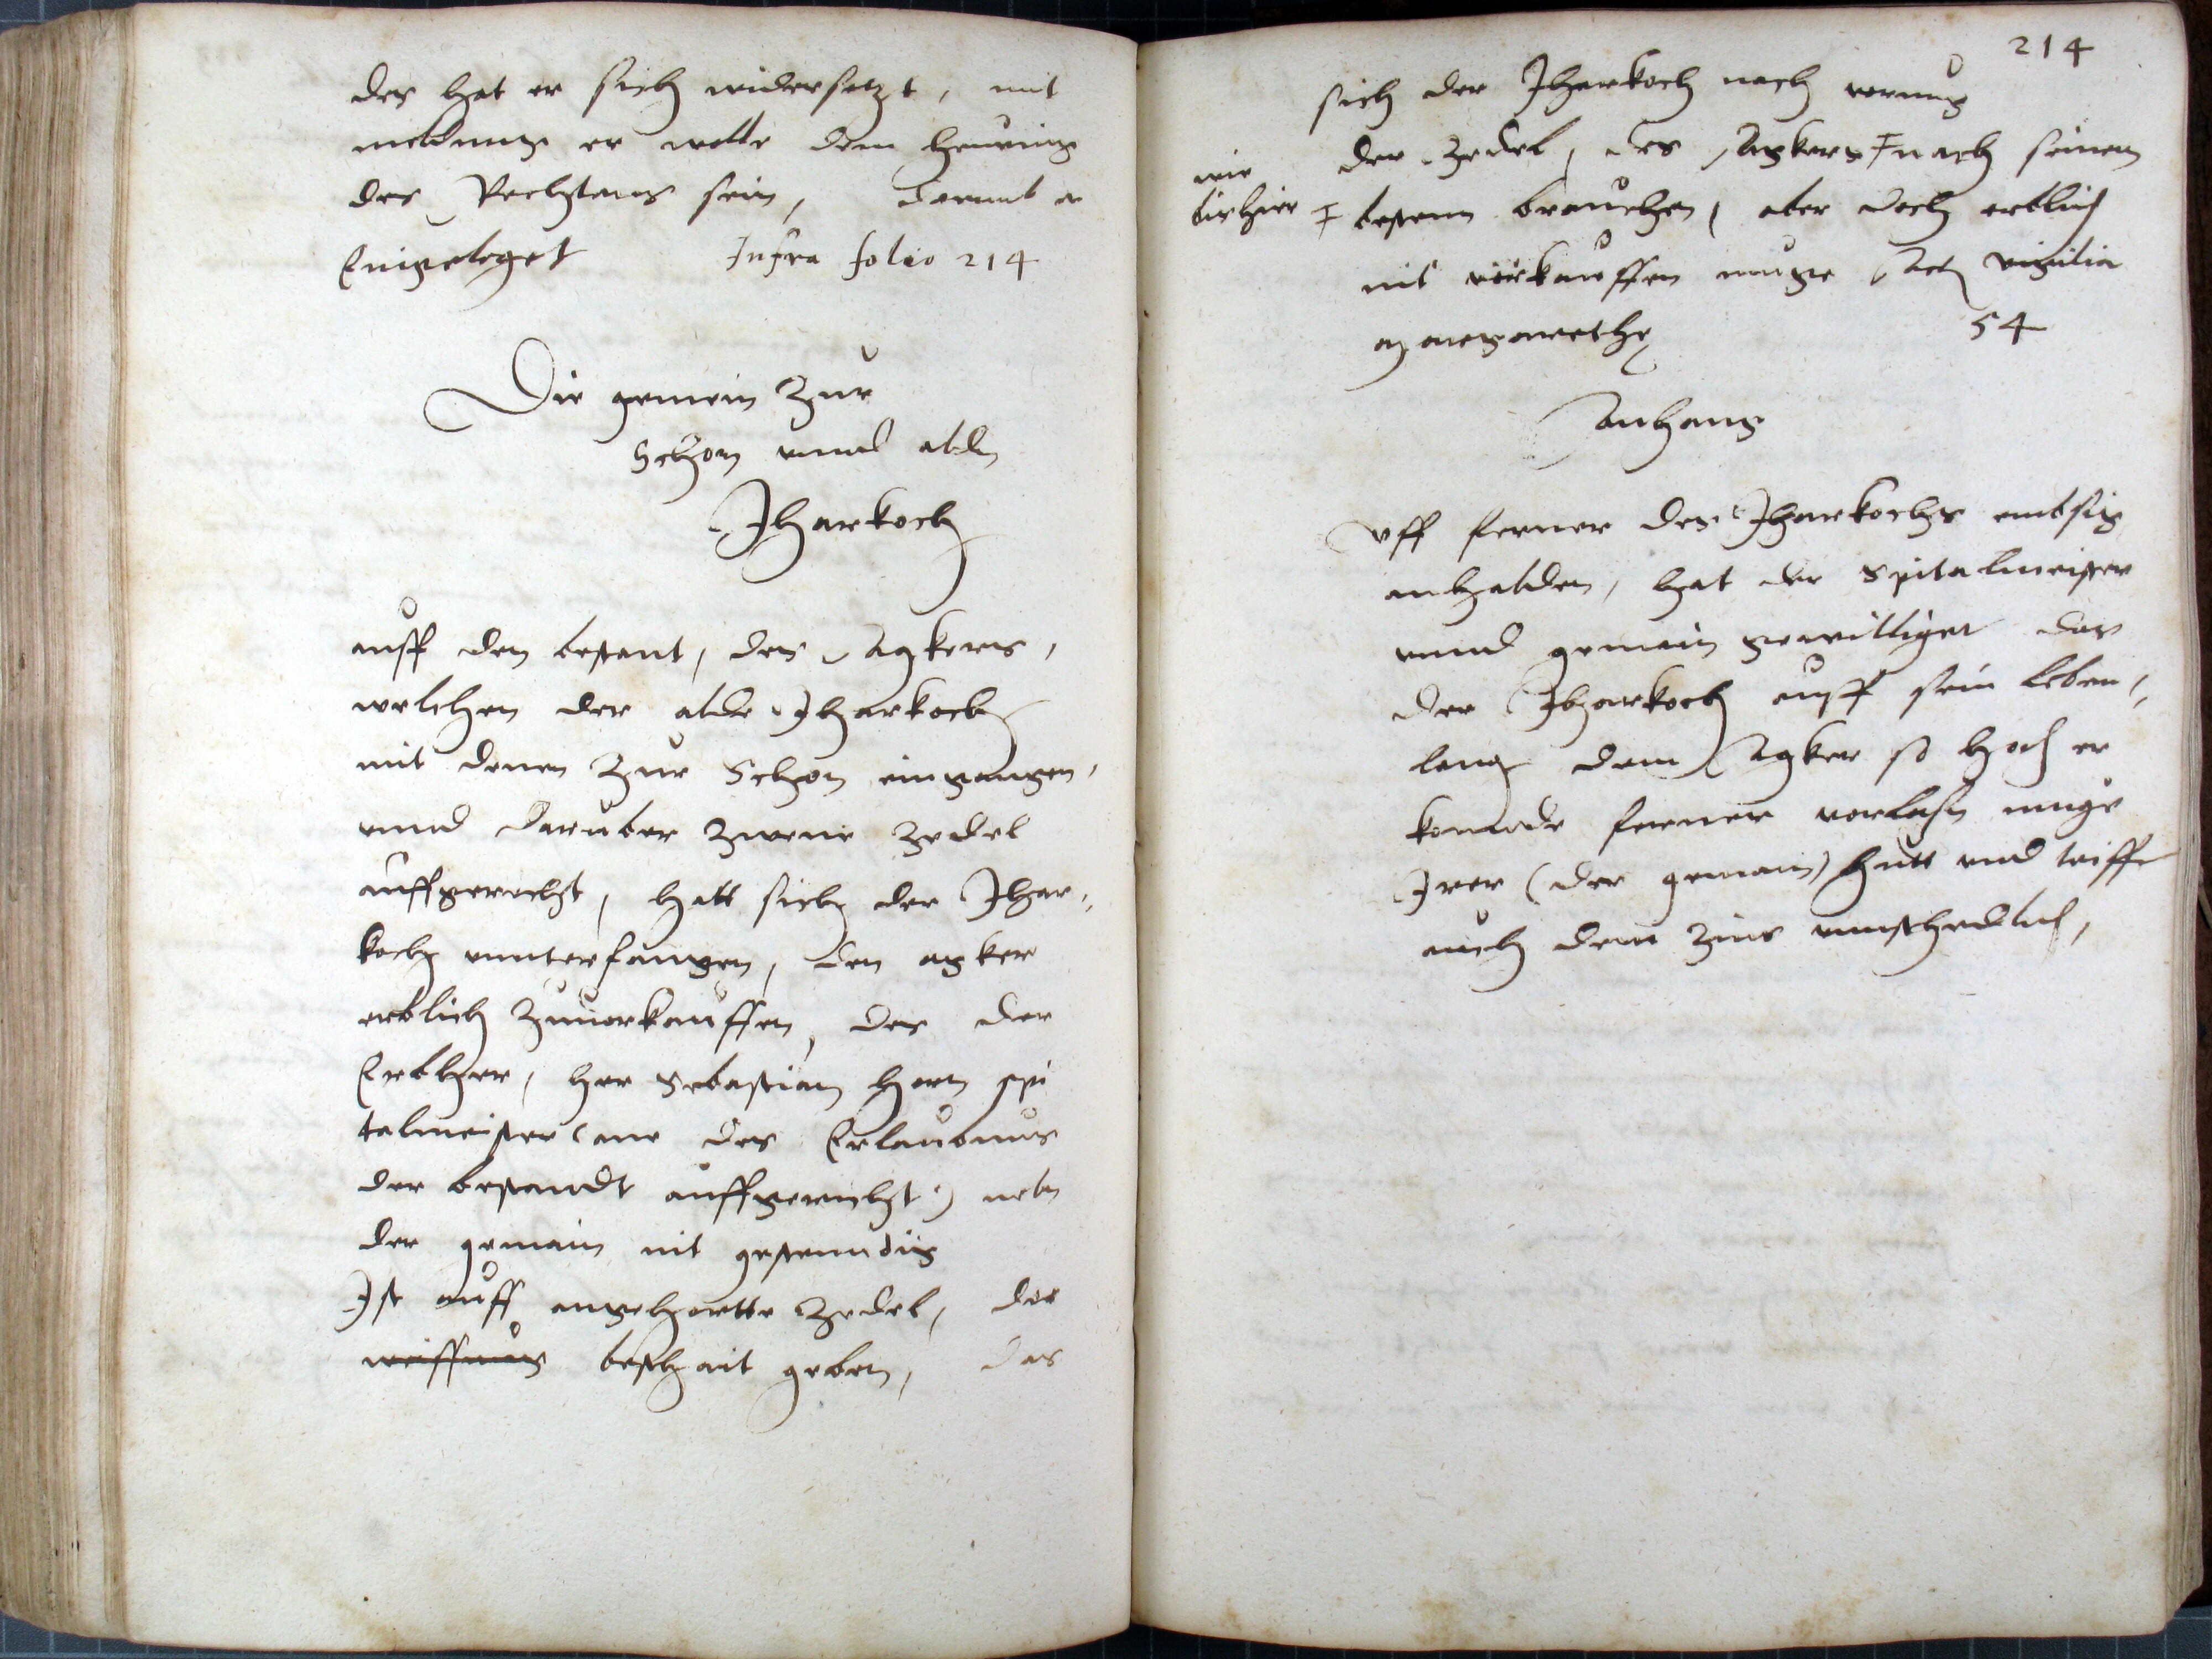 des hat er sich widersetzt, mit
meldung er wolte dem Heuring
des Rechtens sein, darumb er
Eingeleget Infra folio 214
Die gemein Zur
Schon unnd alde
Jharkoch
auff den bestant, des Agkers,
welchen der alde Jharkoch
mit denen Zur Schon eingangen,
unnd daruber Zwene Zedel
auffgericht, hatt sich der Jhar„
koch unnterfangen, den agker
erblich Zuuorkauffen, des der
Erbher, her Sebastian Horn spi
talmeister (ane des Erlaubnus
der bestandt auffgericht) nebn
der gemain nit gestenndig
Ist auff angehortte Zedel, der
weissung beschait geben, das
214
sich der Jharkoch nach vermug
der Zedel, des Agkers ‡ nach seinem
wie
bishier ‡ bestenn brauchen, aber doch erblich
nit vorkauffen muge Act vigilia
margarethe 54
Anhang
Uff ferner des Jharkochs embsig
anhalden, hat der Spitalmeister
unnd gemain gewilliget das
der Jharkoch auff sein leben„
lang dem Agker so hoch er
konnde ferner vorlassn muge
Irer (der gemain) hutt und triffe
auch dem Zins unnschedlich,